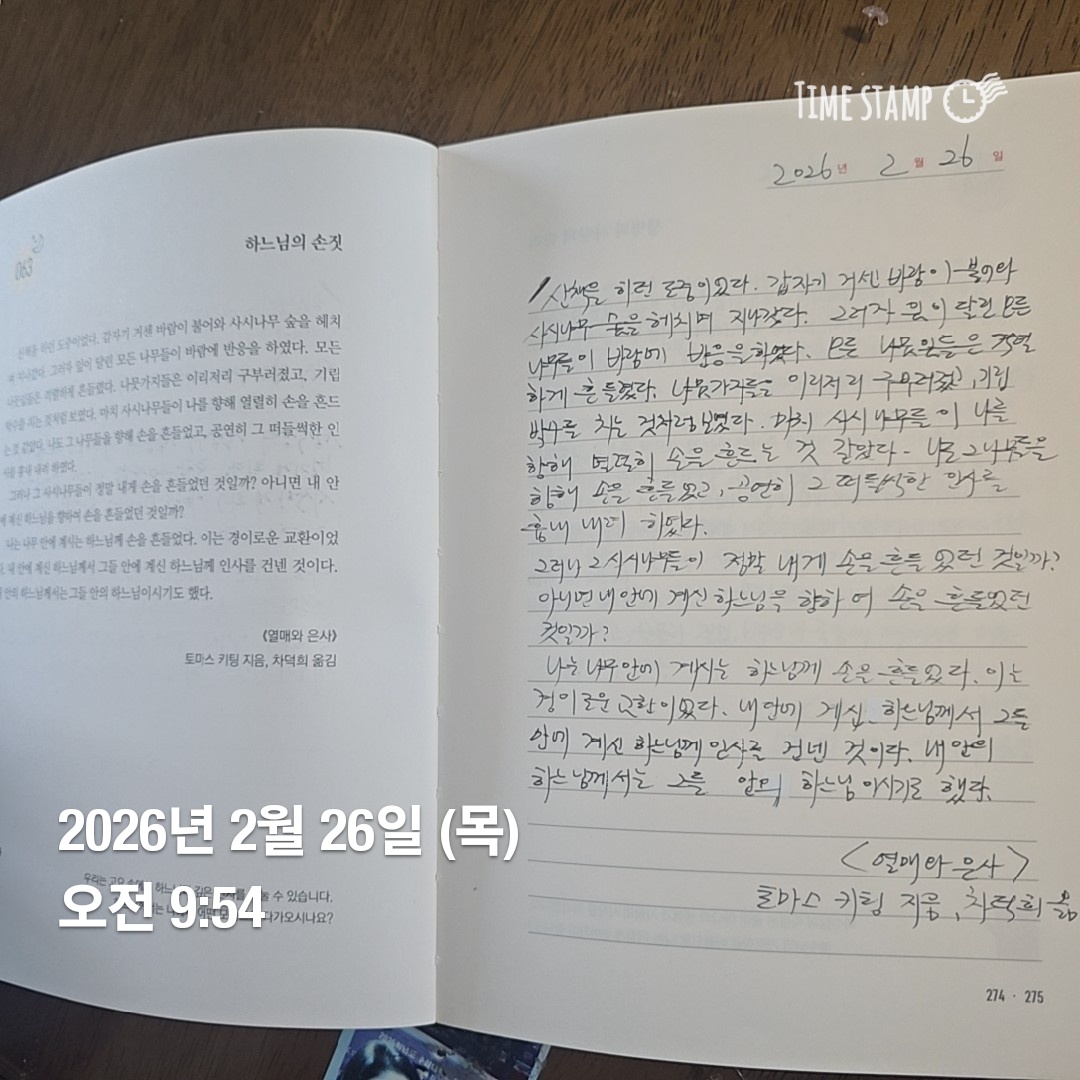 TIME STAMP
2026년 2월 26일
063
하느님의 손짓
산책을 하던 도중이었다. 갑자기 거센 바람이 불어와 사시나무 숲을 헤치
며 지나갔다. 그러자 잎이 달린 모든 나무들이 바람에 반응을 하였다. 모든
나뭇잎들은 격렬하게 흔들렸다. 나뭇가지들은 이리저리 구부러졌고, 기립
박수를 치는 것처럼 보였다. 마치 사시나무들이 나를 향해 열렬히 손을 흔드
는 것 같았다. 나도 그 나무들을 향해 손을 흔들었고, 공연히 그 떠들썩한 인
사를 흉내 내려 하였다.
그러나 그 사시나무들이 정말 내게 손을 흔들었던 것일까? 아니면 내 안
에 계신 하느님을 향하여 손을 흔들었던 것일까?
나는 나무 안에 계시는 하느님께 손을 흔들었다. 이는 경이로운 교환이었
다. 내 안에 계신 하느님께서 그들 안에 계신 하느님께 인사를 건넨 것이다.
내 안의 하느님께서는 그들 안의 하느님이시기도 했다.
《열매와 은사》
토마스 키팅 지음, 차덕희 옮김
우리는 고요 속에 하느님 깊은 를 눌 수 있습니다.
다가오시나요?
산책을 하던 도중이었다. 갑자기 거센 바람이 불어와
사시나무 숲을 헤치며 지나갔다. 그러자 잎이 달린 모든
나무들이 바람에 반응을 하였다. 모든 나뭇잎들은 격렬
하게 흔들렸다. 나뭇가지들은 이리저리 구부러졌고, 기립
박수를 치는 것처럼 보였다. 마치 사시나무들이 나를
향해 열렬히 손을 흔드는 것 같았다. 나도 그 나무들을
향해 손을 흔들었고, 공연히 그 떠들썩한 인사를
흉내 내려 하였다.
그러나 그 사시나무들이 정말 내게 손을 흔들었던 것일까?
아니면 내 안에 계신 하느님을 향하여 손을 흔들었던
것일까?
나는 나무 안에 계시는 하느님께 손을 흔들었다. 이는
경이로운 교환이었다. 내 안에 계신 하느님께서 그들
안에 계신 하느님께 인사를 건넨 것이다. 내 안의
하느님께서는 그들 안의 하느님이시기도 했다.
<열매와 은사>
토마스 키팅 지음, 차덕희 옮김
274 · 275
2026년 2월 26일 (목)
오전 9:54